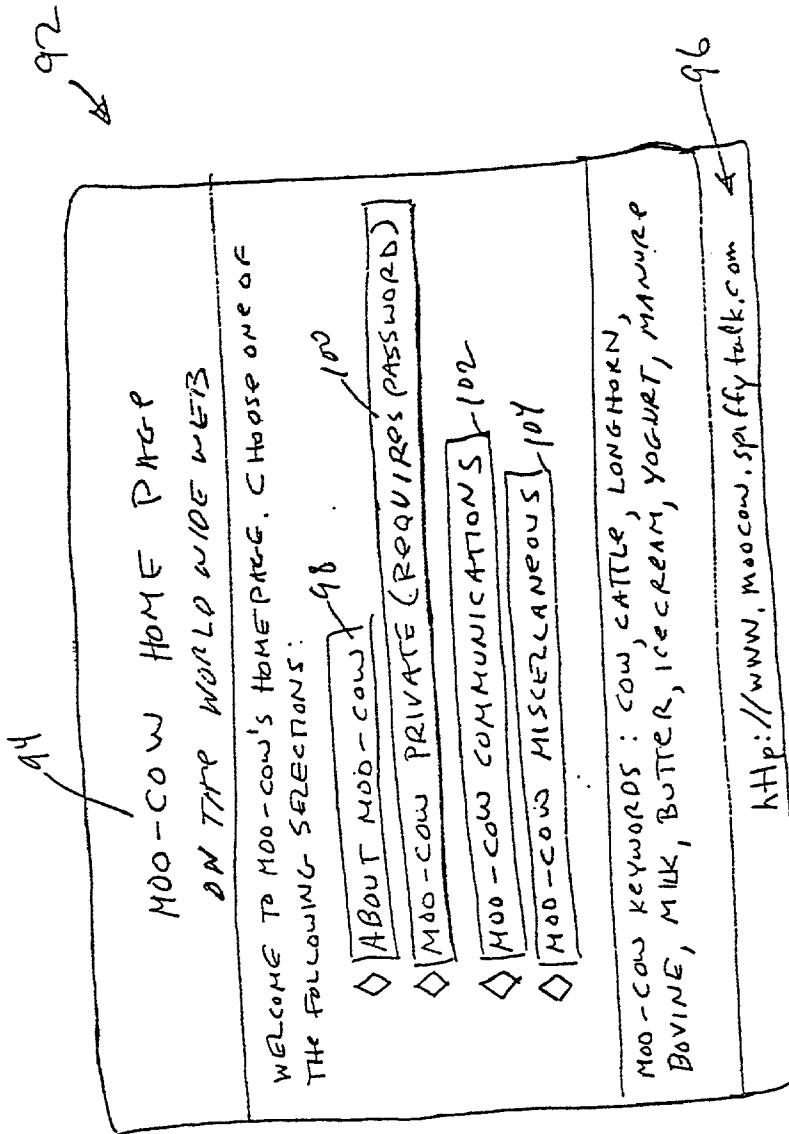 92
94
MOO-COW HOME PAGE
ON THE WORLD WIDE WEB
WELCOME TO MOO-COW'S HOMEPAGE. CHOOSE ONE OF
THE FOLLOWING SELECTIONS:
ABOUT MOO-COW 98
MOO-COW PRIVATE (REQUIRES PASSWORD) 100
MOO-COW COMMUNICATIONS 102
MOO-COW MISCELLANEOUS 104
MOO-COW KEYWORDS: COW, CATTLE, LONGHORN,
BOVINE, MILK, BUTTER, ICECREAM, YOGURT, MANURE
http://www.moocow.spiffytalk.com 96